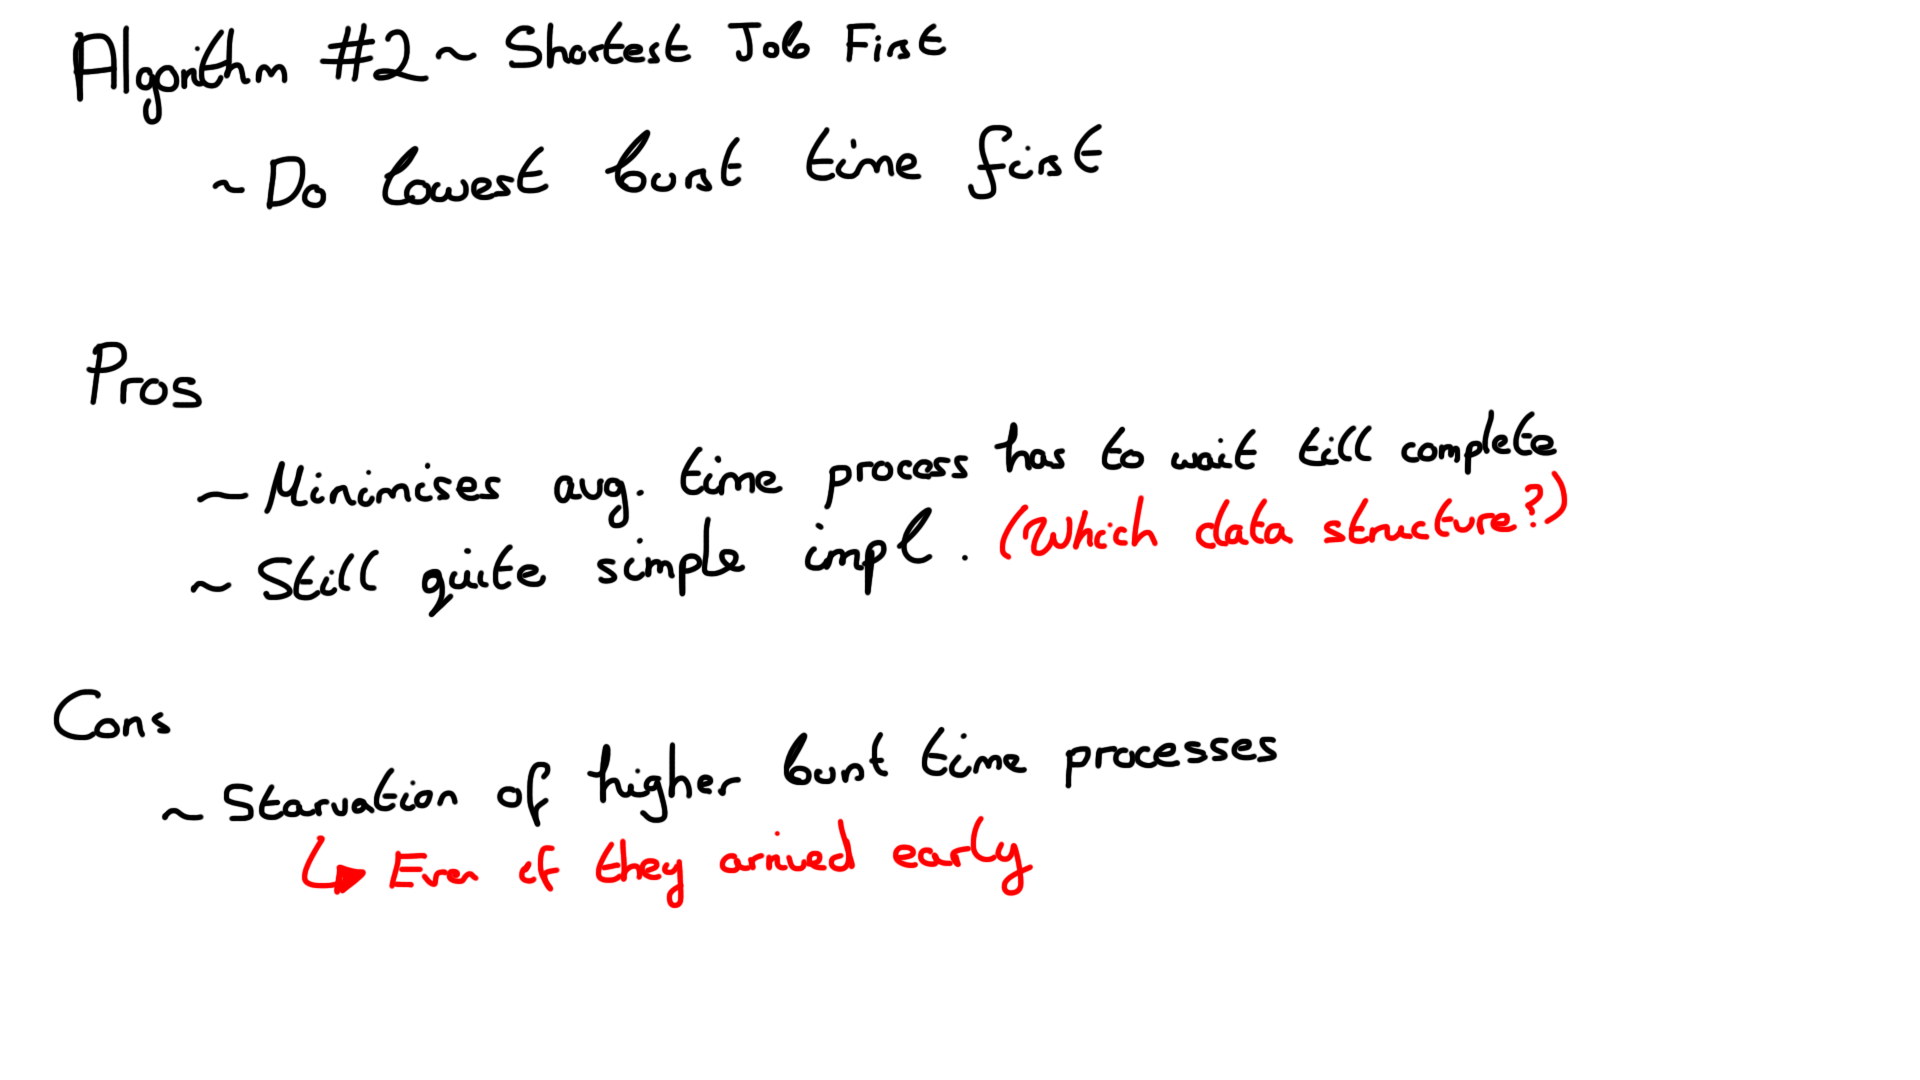 Algorithm #2 ~ Shortest Job First
~ Do lowest burst time first
Pros
~ Minimises avg. time process has to wait till complete
~ Still quite simple impl. (Which data structure?)
Cons
~ Starvation of higher burst time processes
↳ Even if they arrived early